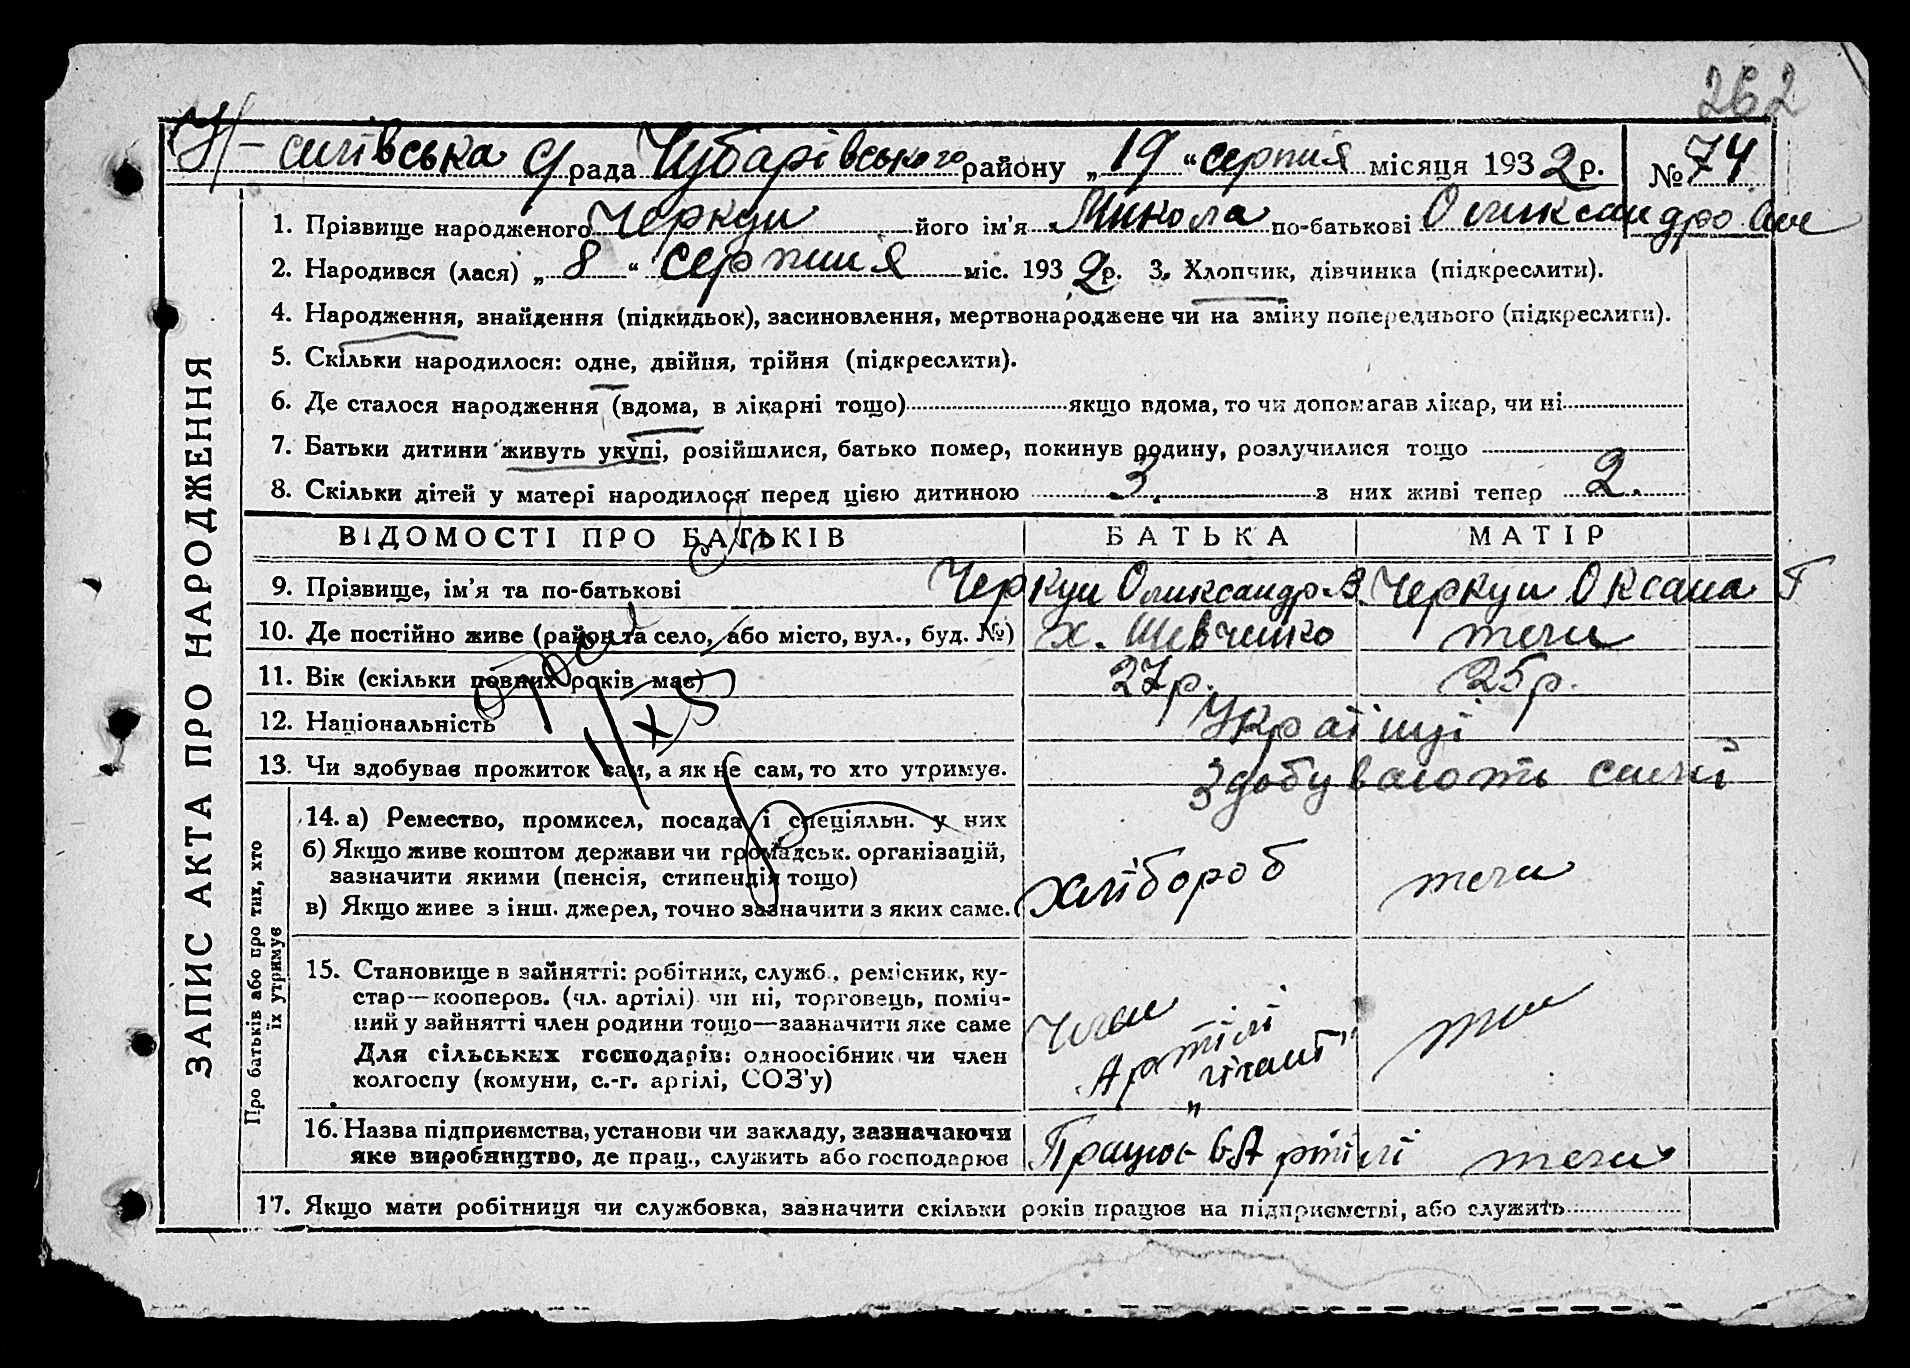 262
сільська С/рада Чубарівського району „19“ серпня місяця 1932 р. № 74
1. Прізвище народженого Черкун його ім'я Микола по-батькові Олександрович
2. Народився (лася) „ 8 “ серпня міс. 1932 р. 3. Хлопчик, дівчинка (підкреслити).
4. Народження, знайдення (підкидьок), засиновлення, мертвонароджене чи на зміну попереднього (підкреслити).
5. Скільки народилося: одне, двійня, трійня (підкреслити).
6. Де сталося народження (вдома, в лікарні тощо) якщо вдома, то чи допомагав лікар, чи ні
7. Батьки дитини живуть укупі, розійшлися, батько помер, покинув родину, розлучилися тощо
8. Скільки дітей у матері народилося перед цією дитиною 3. з них живі тепер 2.
ЗАПИС АКТА ПРО НАРОДЖЕННЯ
ВІДОМОСТІ ПРО БАТЬКІВ БАТЬКА МАТІР
9. Прізвище, ім'я та по-батькові Черкун Олександр З. Черкун Оксана Г
10. Де постійно живе (район та село, або місто, вул., буд. №) х. Шевченко теж
11. Вік (скільки повних років має) 27р. 25р.
12. Національність Українці
13. Чи здобуває прожиток сам, а як не сам, то хто утримує. Здобувають самі
Про батьків або про тих, хто їх утримує
14. а) Ремество, промисел, посада і спеціяльн. у них
б) Якщо живе коштом держави чи громадськ. організацій,
зазначити якими (пенсія, стипендія тощо) хлібороб теж
в) Якщо живе з інш. джерел, точно зазначити з яких саме.
15. Становище в зайнятті: робітник, служб., ремісник, ку-
стар—кооперов. (чл. артілі) чи ні, торговець, поміч-
ний у зайнятті член родини тощо—зазначити яке саме
Для сільських господарів: одноосібник чи член
колгоспу (комуни, с.-г. артілі, СОЗ'у)
Член Артілі „гігант“ теж
16. Назва підприємства, установи чи закладу, зазначаючи
яке виробництво, де прац., служить або господарює Працює в Артілі теж
17. Якщо мати робітниця чи службовка, зазначити скільки років працює на підприємстві, або служить